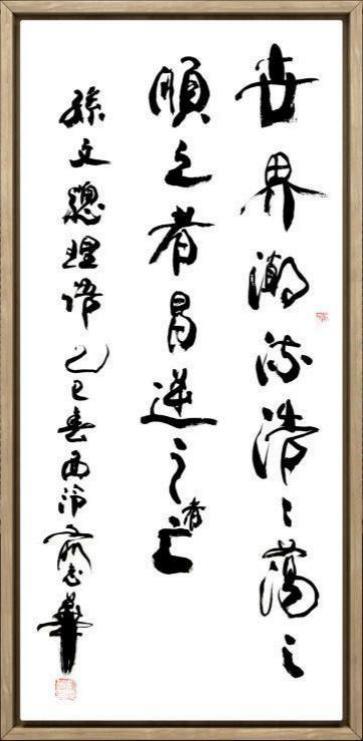 世界潮流浩〻蕩〻
順之者昌逆之者亡
孫文總理語乙巳春西泠